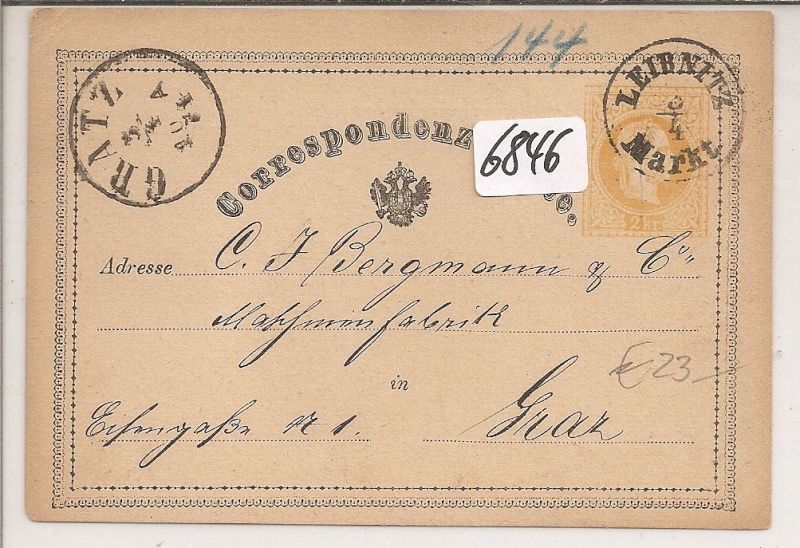 144
LEIBNITZ
3/4
Markt
GRATZ
Correspondenz
6846
2 Kr.
Adresse C. J Bergmann & Co
Maschinenfabrik
in
€ 23
Eisengaße N 1. Graz